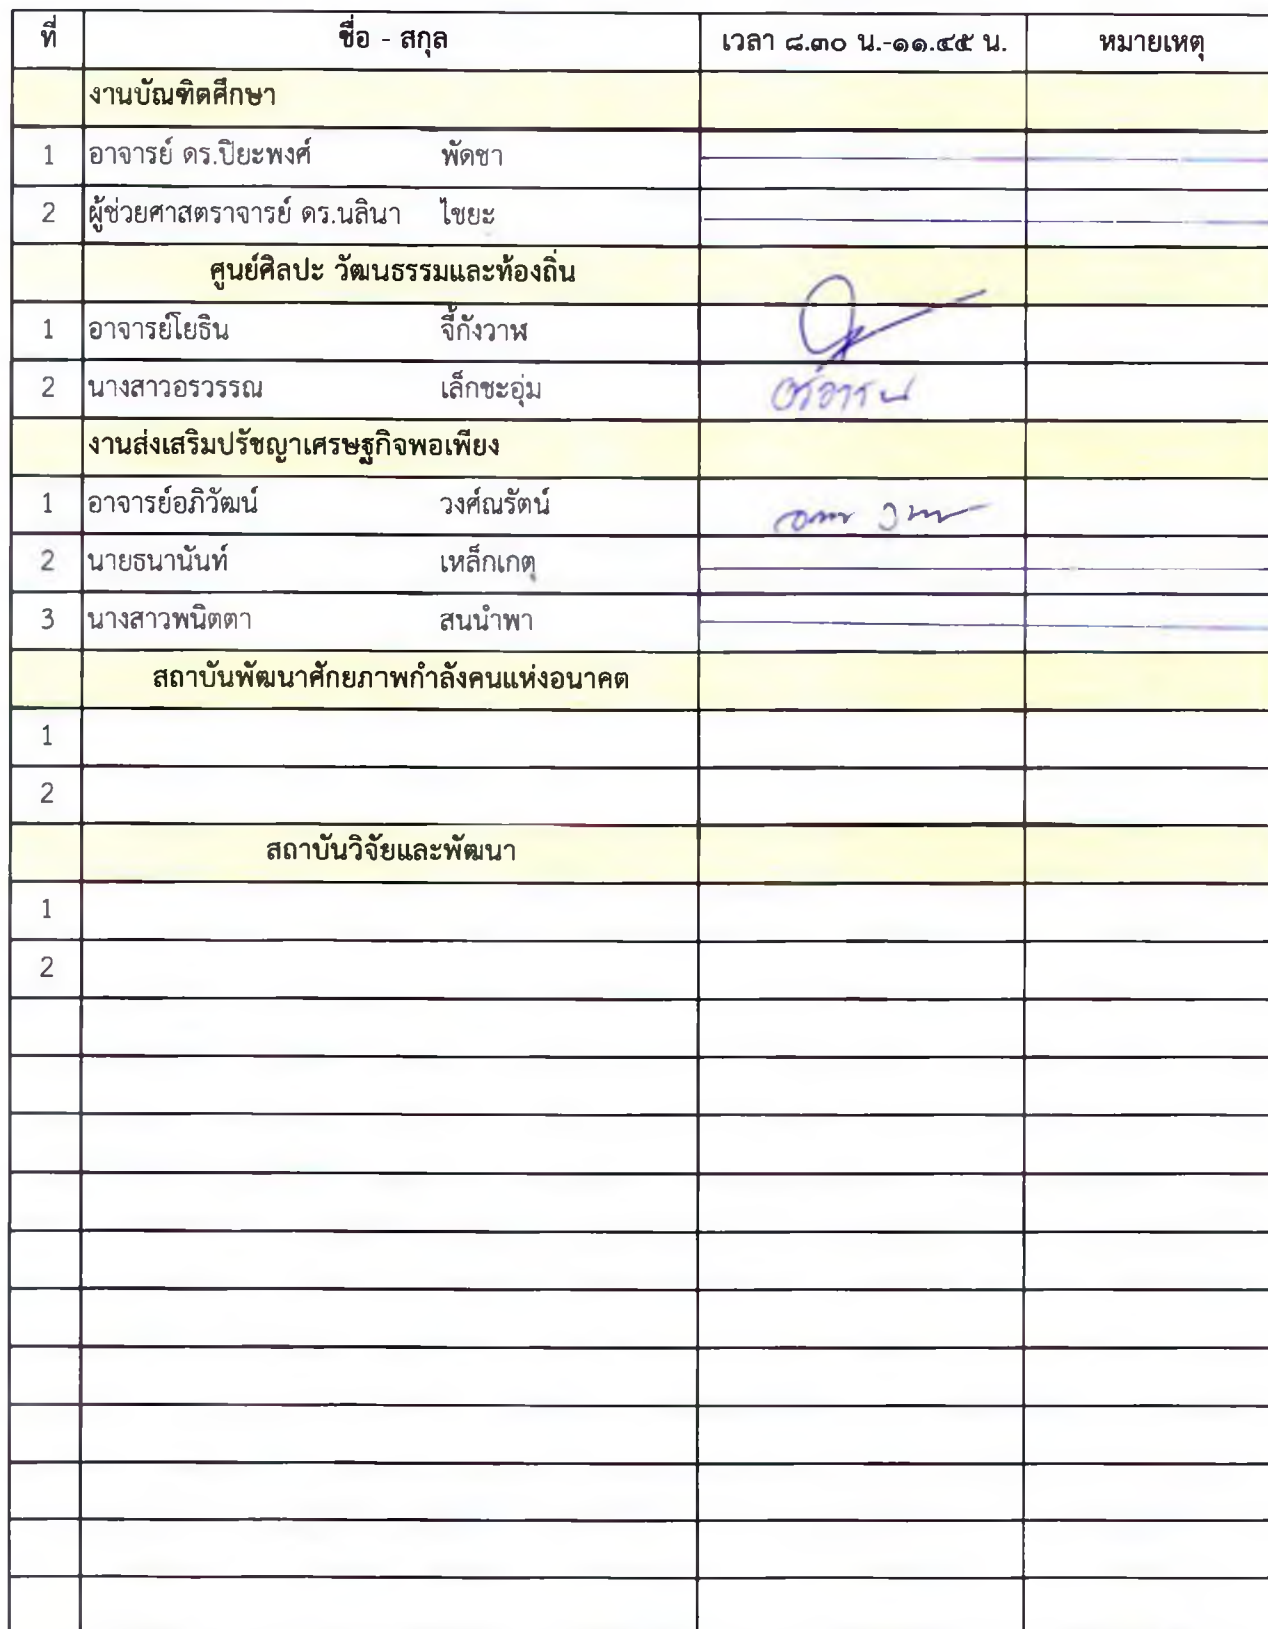 ที่ ชื่อ - สกุล เวลา ๘.๓๐ น.-๑๑.๔๕ น. หมายเหตุ
งานบัณฑิตศึกษา
1 อาจารย์ ดร.ปิยะพงศ์ พัดชา
2 ผู้ช่วยศาสตราจารย์ ดร.นลินา ไชยะ
ศูนย์ศิลปะ วัฒนธรรมและท้องถิ่น
1 อาจารย์โยธิน จี้กังวาฬ
2 นางสาวอรวรรณ เล็กชะอุ่ม อรวรรณ
งานส่งเสริมปรัชญาเศรษฐกิจพอเพียง
1 อาจารย์อภิวัฒน์ วงศ์ณรัตน์
2 นายธนานันท์ เหล็กเกตุ
3 นางสาวพนิตตา สนนำพา
สถาบันพัฒนาศักยภาพกำลังคนแห่งอนาคต
1
2
สถาบันวิจัยและพัฒนา
1
2